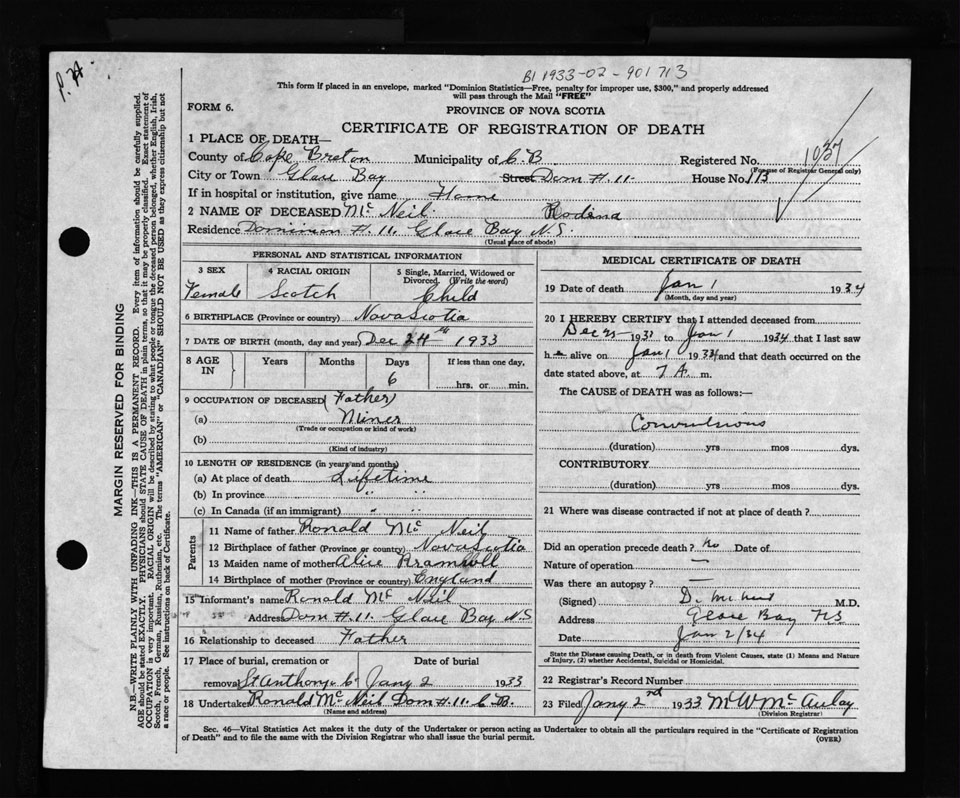 P. H.
B1 1933-02-901713
This form if placed in an envelope, marked "Dominion Statistics—Free, penalty for improper use, $300," and properly addressed
will pass through the Mail "FREE"
FORM 6.
PROVINCE OF NOVA SCOTIA
CERTIFICATE OF REGISTRATION OF DEATH
1 PLACE OF DEATH—
County of Cape Breton Municipality of C.B. Registered No. 1037
(For use of Registrar General only)
City or Town Glace Bay Street Dom #.11. House No. 113
If in hospital or institution, give name Home
2 NAME OF DECEASED Mc Neil. Rodina
Residence Dominion #. 11. Glace Bay N.S.
(Usual place of abode)
PERSONAL AND STATISTICAL INFORMATION
3 SEX 4 RACIAL ORIGIN 5 Single, Married, Widowed or
Divorced. (Write the word)
Female Scotch Child
6 BIRTHPLACE (Province or country) Nova Scotia
7 DATE OF BIRTH (month, day and year) Dec 24th 1933
8 AGE IN Years Months Days If less than one day,
6 hrs. or min.
9 OCCUPATION OF DECEASED (Father)
(a) Miner
(Trade or occupation or kind of work)
(b)
(Kind of industry)
10 LENGTH OF RESIDENCE (in years and months)
(a) At place of death Lifetime
(b) In province " "
(c) In Canada (if an immigrant) " "
Parents
11 Name of father Ronald Mc Neil
12 Birthplace of father (Province or country) Nova Scotia
13 Maiden name of mother Alice
14 Birthplace of mother (Province or country) England
15 Informant's name Ronald Mc Neil
Address Dom #.11. Glace Bay N.S
16 Relationship to deceased Father
17 Place of burial, cremation or Date of burial
removal St Anthony's Jany 2 1933
18 Undertaker Ronald Mc Neil Dom #.11. C.B.
(Name and address)
MEDICAL CERTIFICATE OF DEATH
19 Date of death Jan 1 1934
(Month, day and year)
20 I HEREBY CERTIFY that I attended deceased from
Dec 1933 to Jan 1 1934 that I last saw
h alive on Jan 1 1934 and that death occurred on the
date stated above, at 7 A. m.
The CAUSE of DEATH was as follows:—
Convulsions
(duration) yrs mos dys.
CONTRIBUTORY
(duration) yrs mos dys.
21 Where was disease contracted if not at place of death?
Did an operation precede death? No Date of
Nature of operation —
Was there an autopsy? —
(Signed) M.D.
Address Glace Bay NS
Date Jan 2/34
State the Disease causing Death, or in death from Violent Causes, state (1) Means and
Nature of Injury, (2) whether Accidental, Suicidal or Homicidal.
22 Registrar's Record Number
23 Filed Jany 2nd 1933 M W Mc Aulay
(Division Registrar)
Sec. 46—Vital Statistics Act makes it the duty of the Undertaker or person acting as Undertaker to obtain all the particulars required in the "Certificate of Registration
of Death" and to file the same with the Division Registrar who shall issue the burial permit.
(OVER)
MARGIN RESERVED FOR BINDING
N.B.—WRITE PLAINLY WITH UNFADING INK—THIS IS A PERMANENT RECORD. Every item of information should be carefully supplied.
AGE should be stated EXACTLY. PHYSICIANS should STATE CAUSE OF DEATH in plain terms, so that it may be properly classified. Exact statement of
OCCUPATION is very important. RACIAL ORIGIN will be described by stating to what people or tongue the deceased person belonged, whether English, Irish,
Scotch, French, German, Russian, Ruthenian, etc. The terms "AMERICAN" or "CANADIAN" SHOULD NOT BE USED as they express citizenship but not
a race or people. See instructions on back of Certificate.